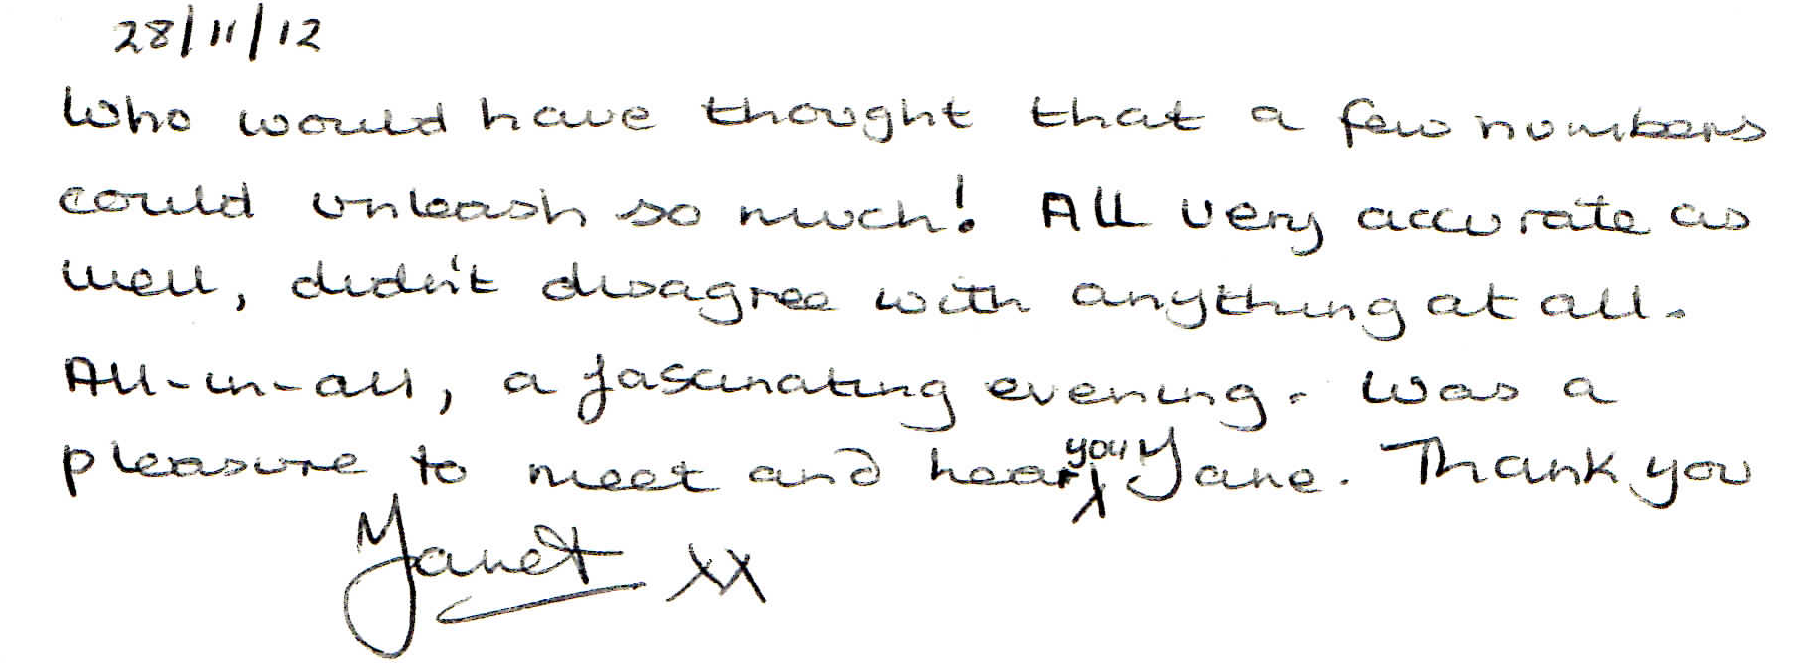 28/11/12
Who would have thought that a few numbers
could unleash so much! All very accurate as
well, didn't disagree with anything at all.
All-in-all, a fascinating evening. Was a
pleasure to meet and hear you Jane. Thank you
Janet xx